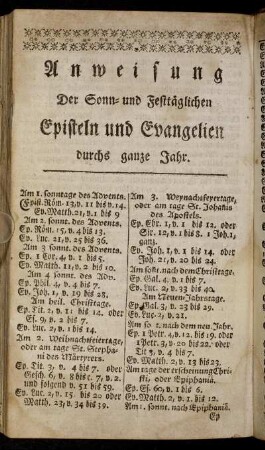 Anweisung
Der Sonn- und Festtäglichen
Episteln und Evangelien
durchs ganze Jahr.
Am 1. sonntage des Advents.
Epist. Röm. 13, v. 11 bis v. 14.
Ev. Matth. 21, v. 1 bis 9
Am 2. sonnt. des Advents.
Ep. Röm. 15, v. 4 bis 13.
Ev. Luc. 21, v. 25 bis 36.
Am 3 sonnt. des Advents.
Ep. 1 Cor. 4, v. 1 bis 5.
Ev. Matth. 11, v. 2 bis 10.
Am 4 sonnt. des Adv.
Ep. Phil. 4, v. 4 bis 7.
Ev. Joh. 1, v. 19 bis 28.
Am heil. Christtage.
Ep. Tit. 2, v. 11 bis 14. oder
Es. 9. v. 2 bis 7.
Ev. Luc. 2, v. 1 bis 14.
Am 2. Weihnachtsfeiertage,
oder am tage St. Stephani
des Märtyrers.
Ep. Tit. 3, v. 4 bis 7. oder
Gesch. 6, v. 8 bis 7, v. 2.
und folgend v. 51 bis 59.
Ev. Luc. 2, v. 15 bis 20 oder
Matth. 23, v. 34 bis 39.
Am 3. Weynachtsfeyertage,
oder am tage St. Johañis
des Apostels.
Ep. Ebr. 1, v. 1 bis 12 oder
Sir. 15, v. 1 bis 8. 1 Joh. 1,
gantz.
Ev. Joh. 1, v. 1 bis 14 oder
Joh. 21, v. 20 bis 24.
Am soñt. nach dem Christtage.
Ep. Gal. 4, v. 1 bis 7.
Ev. Luc. 2, v. 33 bis 40.
Am Neuen-Jahrstage.
Ep. Gal. 3, v. 23 bis 29.
Ev. Luc. 2, v. 21.
Am so t. nach dem neu Jahr.
Ep. 1 Petr. 4, v. 12 bis 19. oder
1 Petr. 3, v. 20 bis 22 oder
Tit 3, v. 4 bis 7.
Ev. Matth. 2, v. 13 bis 23.
Am tage der erscheinung Christi,
oder Epiphaniä.
Ep. Es. 60, v. 1 bis 6.
Ev. Matth. 2, v. 1 bis 12.
Am 1. sonnt. nach Epiphaniä.
Ep